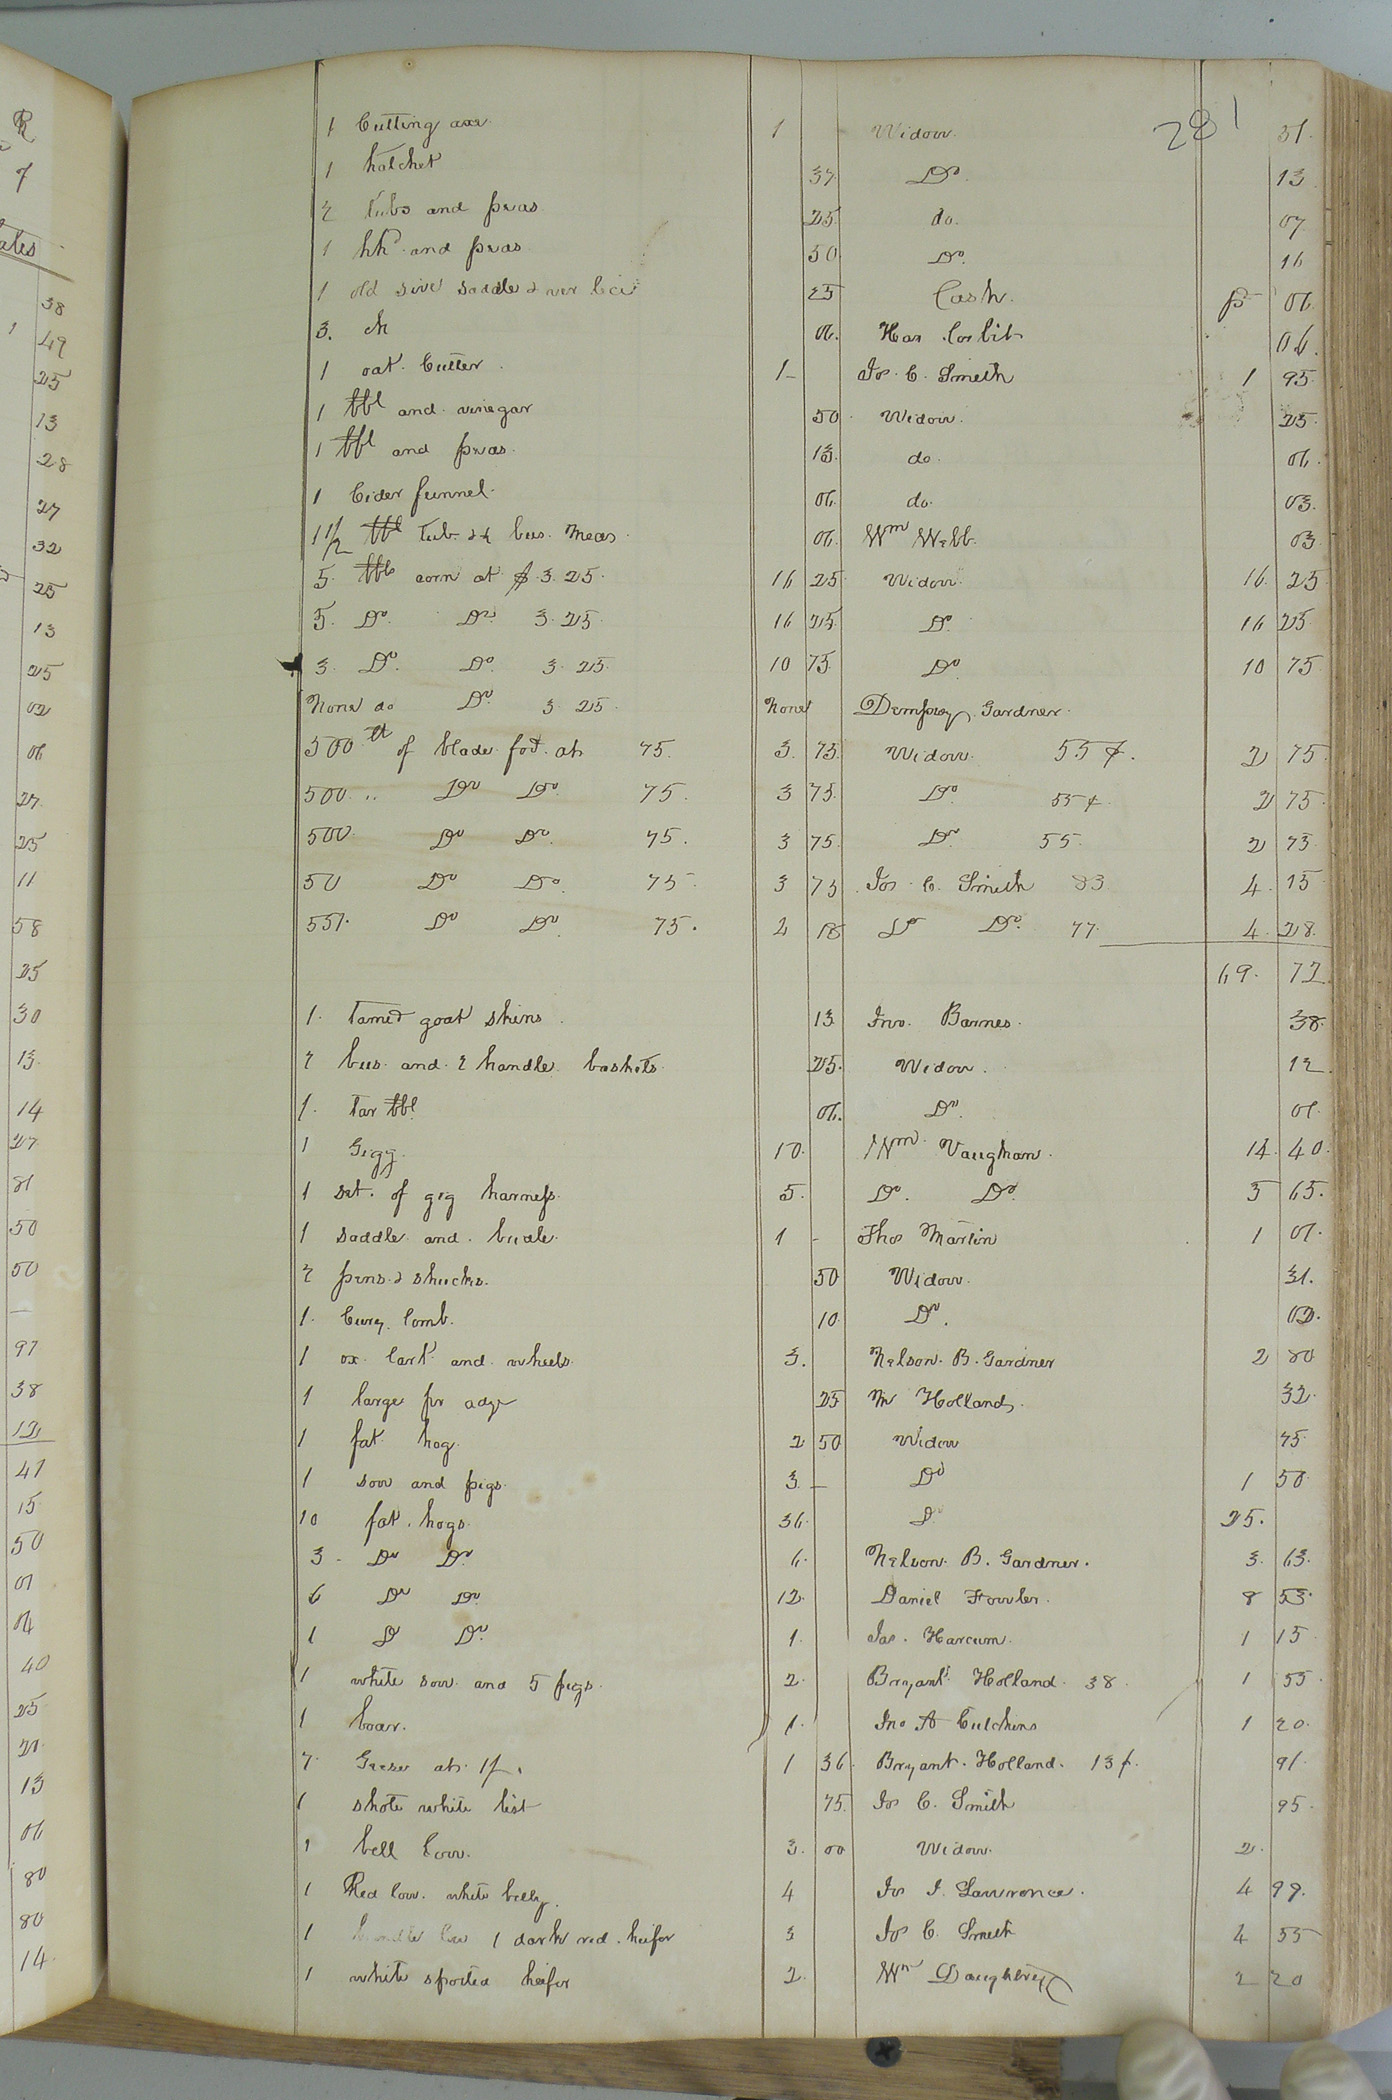 281
1 Cutting axe 1 Widow 51
1 hatchet 37 Do 13
2 tubs and peas 25 do 07
1 hhd and peas 50 Do 16
1 old sive saddle & 25 Cash 06
3 06 Har Corbit 06
1 oat Cutter 1 – Jos C. Smith 1 95
1 bbl and vinegar 50 Widow 25
1 bbl and peas 13 do 06
1 Cider funnel 06 do 03
1 1/2 bbl tub & ½ bus. Meas 06 Wm Webb 03
5 bbls corn at $3.25 16 25 Widow 16 25
5 Do Do 3.25 16 25 Do 16 25
3 Do Do 3.25 10 75 Do 10 75
None do Do 3.25 None Dempsey Gardner
500 lt of blade fod. at 75 3 75 Widow 55 ¢ 2 75
500 " Do Do 75 3 75 Do 55 ¢ 2 75
500 Do Do 75 3 75 Do 55 2 75
50 Do Do 75 3 75 Jos C. Smith 83 4 15
557 Do Do 75 2 18 Do Do 77 4 28
69 72
1 tanned goat skins 13 Jno. Barnes 38
2 bus and 2 handle baskets 25 Widow 12
1 tar bbl 06 Do 01
1 Gigg 10 Wm Vaughan 14 40
1 set of gig harness 5 Do Do 5 65
1 saddle and bridle 1 – Thos Martin 1 01
2 pens & shucks 50 Widow 31
1 Curry Comb 10 Do 02
1 ox Cart and wheels 3 Nelson B. Gardner 2 80
1 large adze 25 Holland 32
1 fat hog 2 50 Widow 75
1 sow and pigs 3 – Do 1 50
10 fat hogs 36 D 25
3 Do Do 6 Nelson B. Gardner 3 63
6 Do Do 12 Daniel Fowler 8 53
1 D Do 1 Jas. Harcum 1 15
1 white sow and 5 pigs 2 Bryant Holland 38 1 55
1 boar 1 Jno A Cutchins 1 20
7 Geese at 1/ 1 36 Bryant Holland 13 ¢ 91
1 shote white list 75 Jos C. Smith 95
1 bell Cow 3 00 Widow 2
1 Red Cow white belly 4 Jos J. Lawrence 4 99
1 Cow 1 dark red heifer 3 Jos C. Smith 4 55
1 white spotted heifer 2 Wm Daughtrey 2 20
ates
38
1 49
25
13
28
27
32
25
13
25
02
06
27
25
11
58
25
30
13
14
27
81
50
50
–
97
38
12
47
15
50
01
04
40
25
21
13
06
80
80
14